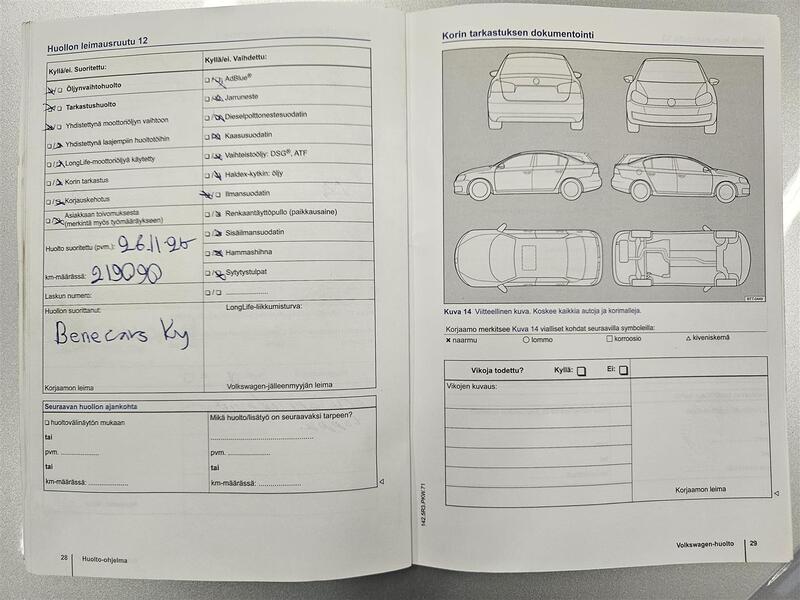 Huollon leimausruutu 12
Kyllä/ei. Suoritettu:
Öljynvaihtohuolto
Tarkastushuolto
Yhdistettynä moottoriöljyn vaihtoon
Yhdistettynä laajempiin huoltotöihin
LongLife-moottoriöljyä käytetty
Korin tarkastus
Korjauskehotus
Asiakkaan toivomuksesta
(merkintä myös työmääräykseen)
Huolto suoritettu (pvm.): 26.11.25
km-määrässä: 219090
Laskun numero:
Huollon suorittanut:
Benecars Ky
Korjaamon leima
Kyllä/ei. Vaihdettu:
AdBlue®
Jarruneste
Dieselpolttonestesuodatin
Kaasusuodatin
Vaihteistoöljy: DSG®, ATF
Haldex-kytkin: öljy
Ilmansuodatin
Renkaantäyttöpullo (paikkausaine)
Sisäilmansuodatin
Hammashihna
Sytytystulpat
LongLife-liikkumisturva:
Volkswagen-jälleenmyyjän leima
Seuraavan huollon ajankohta
huoltovälinäytön mukaan
tai
pvm. ....................
tai
km-määrässä: ....................
Mikä huolto/lisätyö on seuraavaksi tarpeen?
pvm. ....................
tai
km-määrässä: ....................
28 Huolto-ohjelma
Korin tarkastuksen dokumentointi
Kuva 14 Viitteellinen kuva. Koskee kaikkia autoja ja korimalleja.
Korjaamo merkitsee Kuva 14 vialliset kohdat seuraavilla symboleilla:
✖ naarmu ○ lommo □ korroosio △ kiveniskemä
Vikoja todettu? Kyllä: ❑ Ei: ❑
Vikojen kuvaus:
Korjaamon leima
142.5R3.PKW.71
Volkswagen-huolto 29